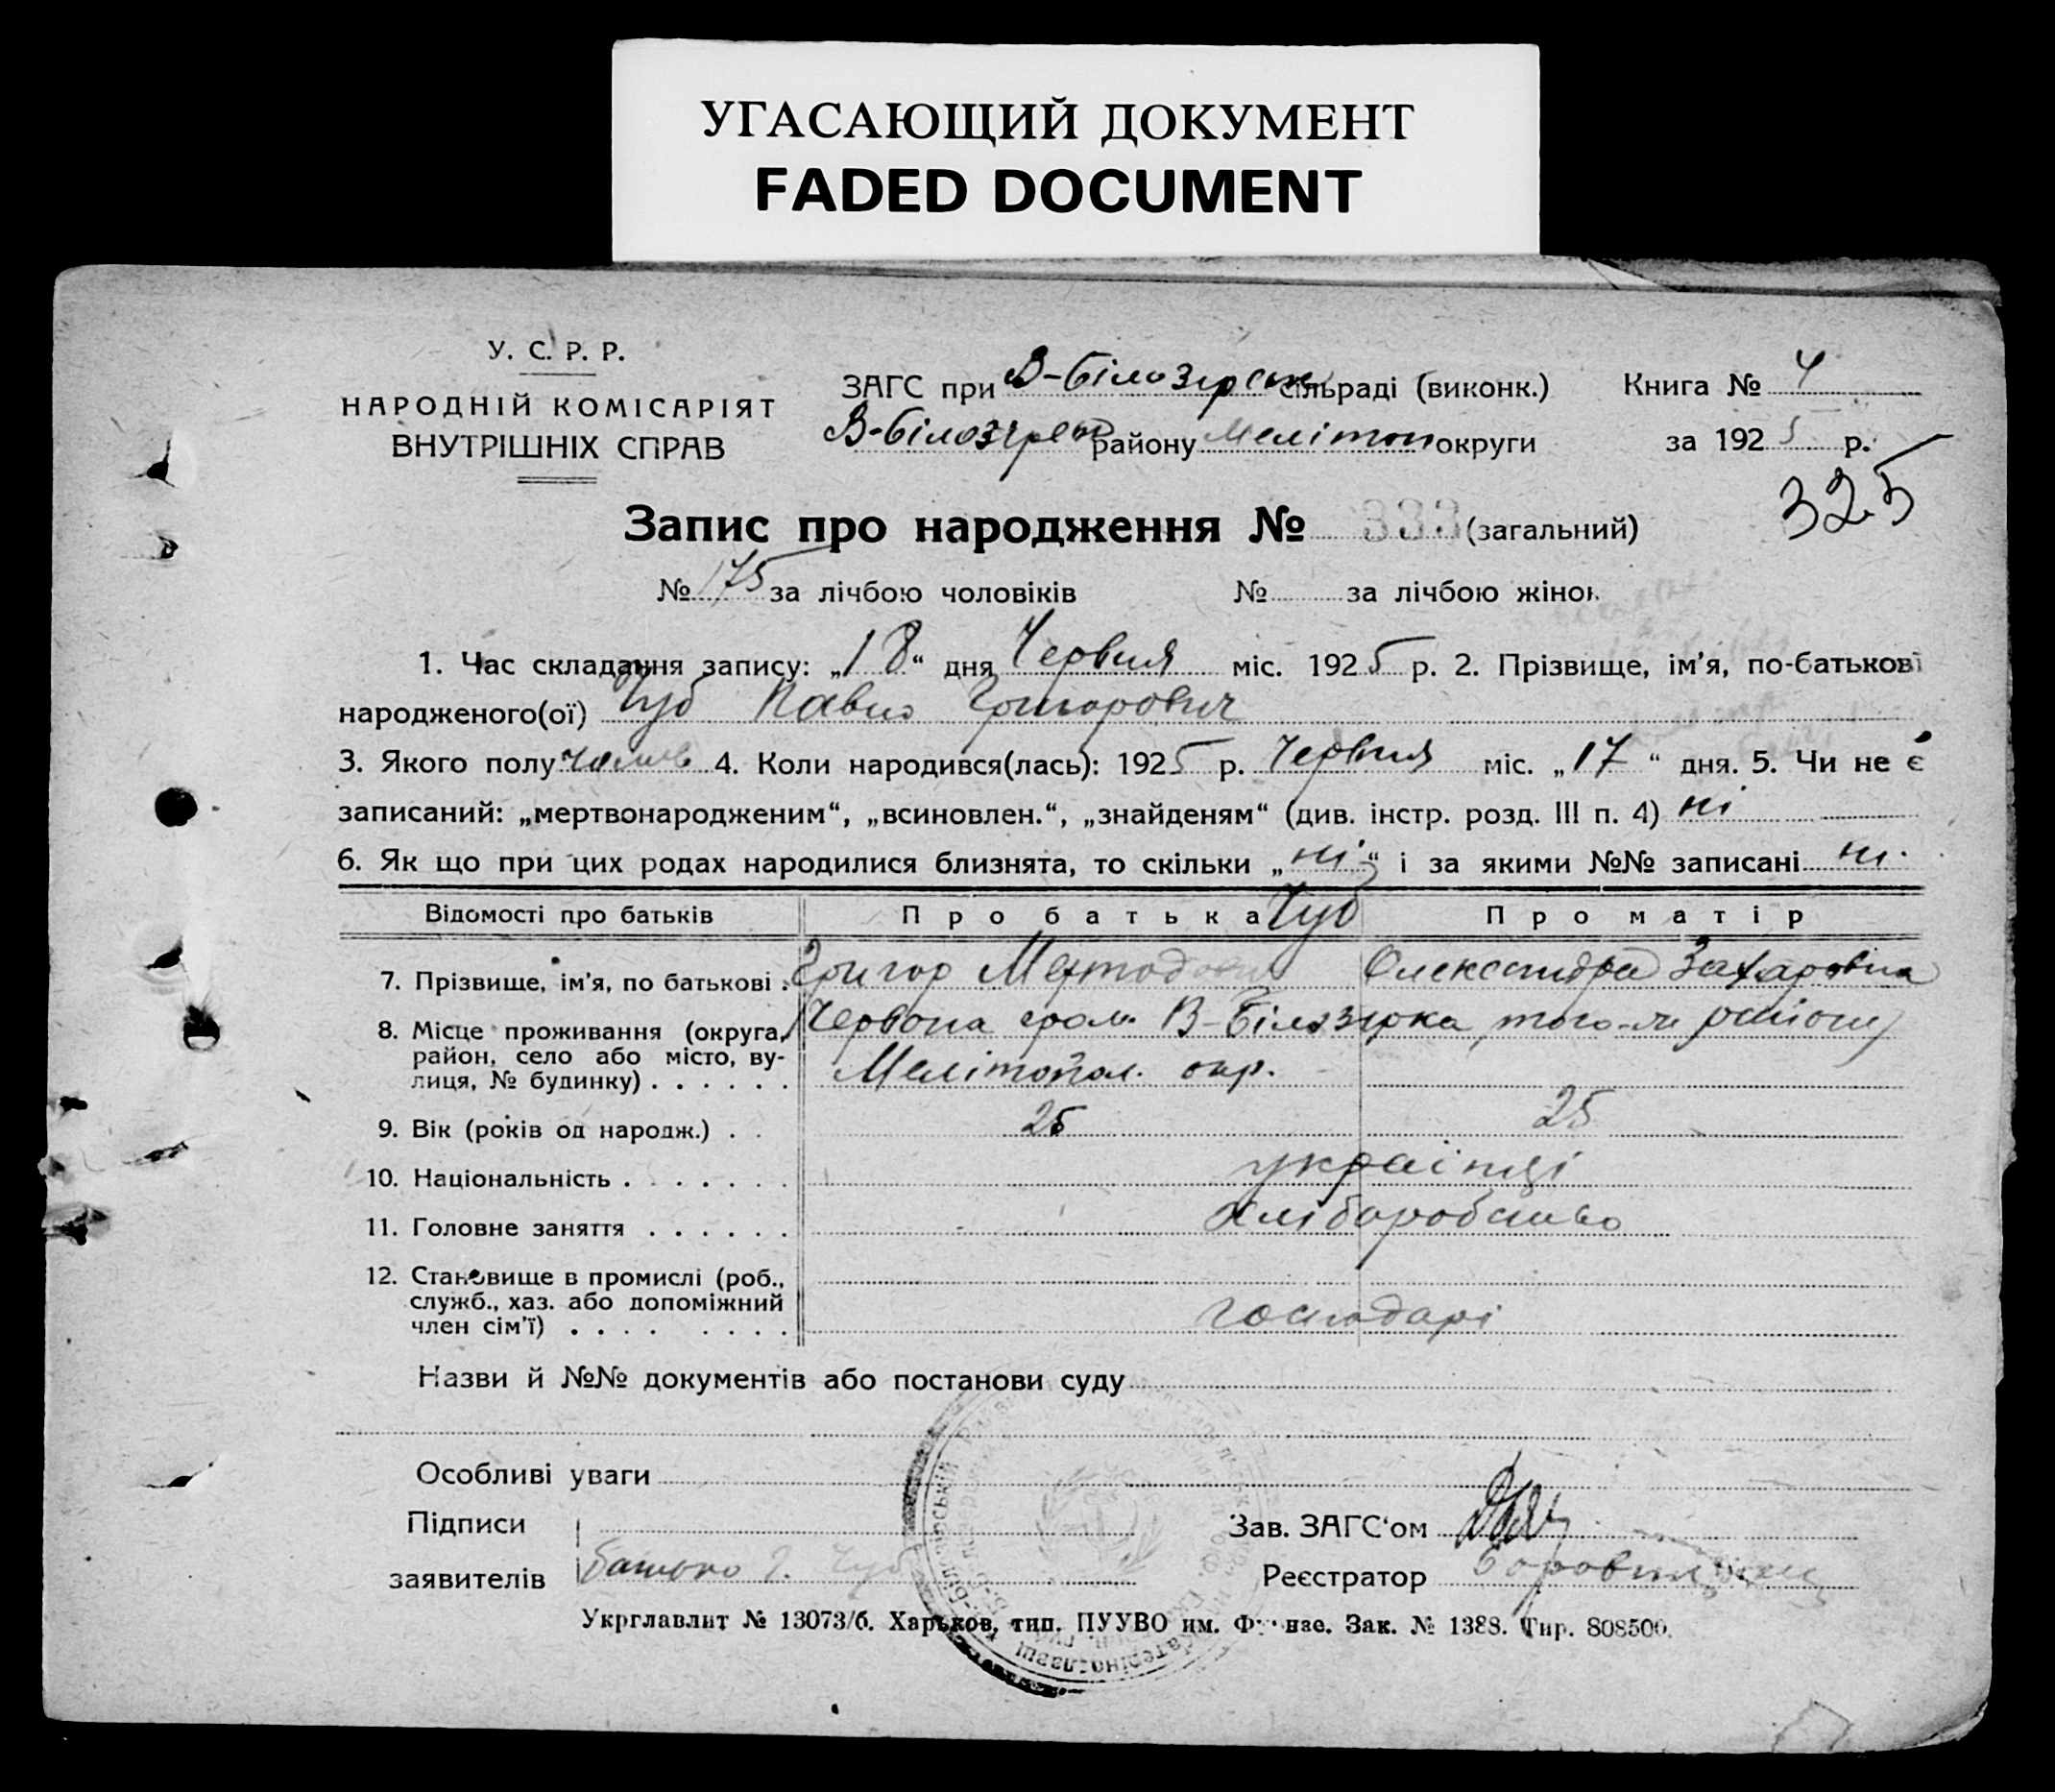 УГАСАЮЩИЙ ДОКУМЕНТ
FADED DOCUMENT
У. С. Р. Р.
НАРОДНІЙ КОМІСАРІЯТ
ВНУТРІШНІХ СПРАВ
ЗАГС при В-Білозірськ сільраді (виконк.)
В-Білозірськ району Мелітоп округи
Книга № 4
за 1925 р.
325
Запис про народження № 333 (загальний)
№ 175 за лічбою чоловіків № за лічбою жінок
1. Час складання запису: „18“ дня Червня міс. 1925 р. 2. Прізвище, ім’я, по-батькові
народженого(ої) Чуб Павло Григорович
3. Якого полу чолов 4. Коли народився(лась): 1925 р. Червня міс. „17“ дня. 5. Чи не є
записаний: „мертвонародженим“, „всиновлен.“, „знайденям“ (див. інстр. розд. III п. 4) ні
6. Як що при цих родах народилися близнята, то скільки „ні“ і за якими №№ записані ні
Відомості про батьків Про батька Чуб Про матір
7. Прізвище, ім’я, по батькові Григор Мефтодович Олександра Захаровна
8. Місце проживання (округа, Червона гром. В-Білозірка, того-ж району
район, село або місто, ву-
лиця, № будинку) Мелітопол. окр.
9. Вік (років од народж.) 25 25
10. Національність українці
11. Головне заняття хліборобство
12. Становище в промислі (роб.,
служб., хаз. або допоміжний
член сім’ї) господарі
Назви й №№ документів або постанови суду
Особливі уваги
Підписи
заявителів батько Г. Чуб
Зав. ЗАГС‘ом
Реєстратор
Укрглавлит № 13073/б. Харьков, тип. ПУУВО им. Фрунзе. Зак. № 1388. Тир. 808500.